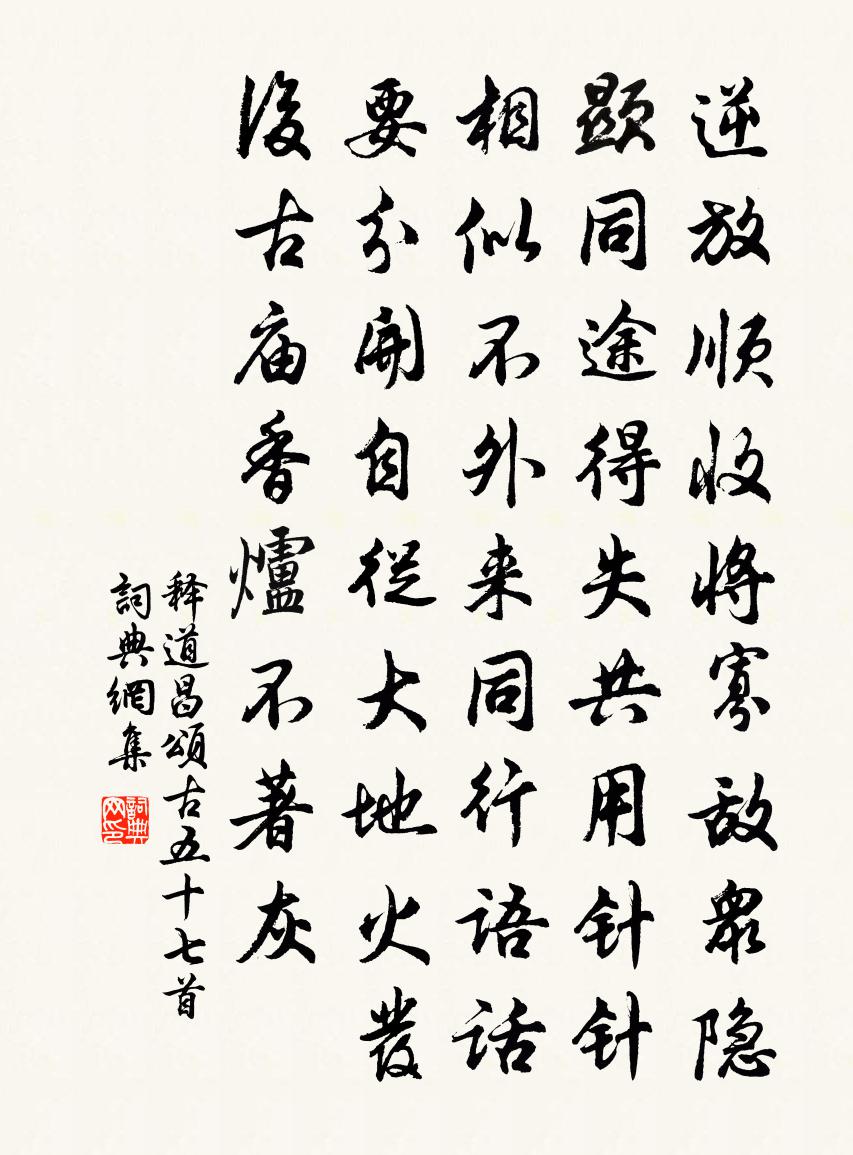 逆放顺收将寡敌眾隐
顯同途得失共用针针
相似不外来同行语话
要分開自従大地火發
後古庙香爐不著灰
释道昌頌古五十七首
詞典網集
詞典网印